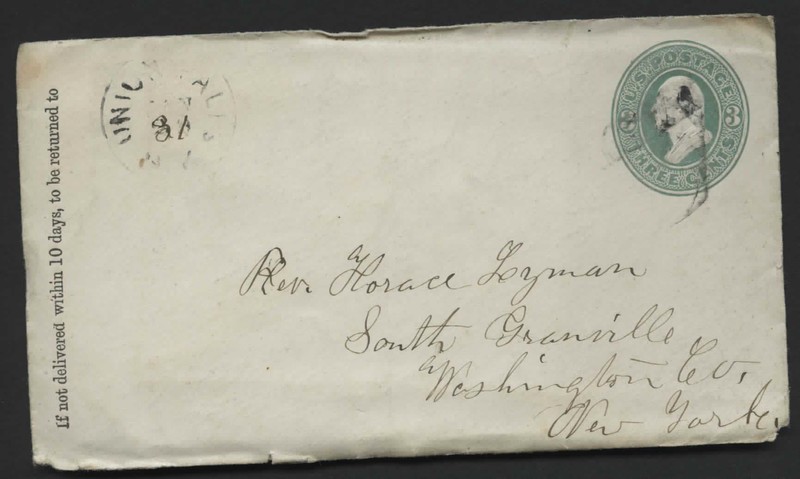 If not delivered within 10 days, to be returned to
31
U.S. POSTAGE
3
THREE CENTS
Rev. Horace Lyman
South Granville
Washington Co.
New York.